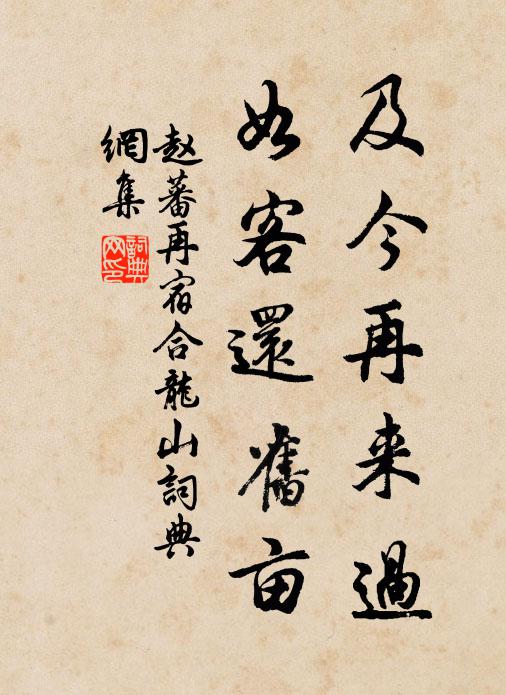 及今再来過
如客還舊亩
赵蕃再宿合龍山詞典
網集
詞典网印